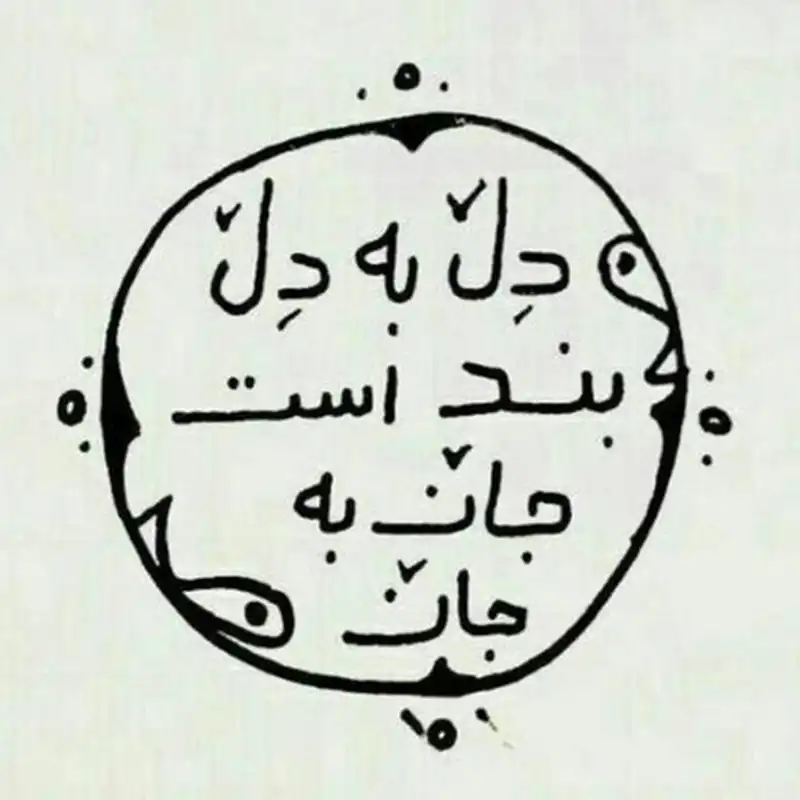 دِلْ به دِلْ
بند است
جانْ به
جانْ